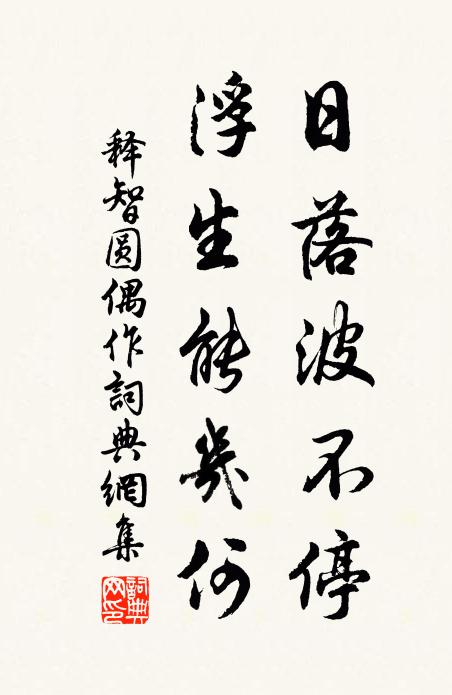 日落波不停
浮生能幾何
释智圓偶作詞典網集
詞典網印